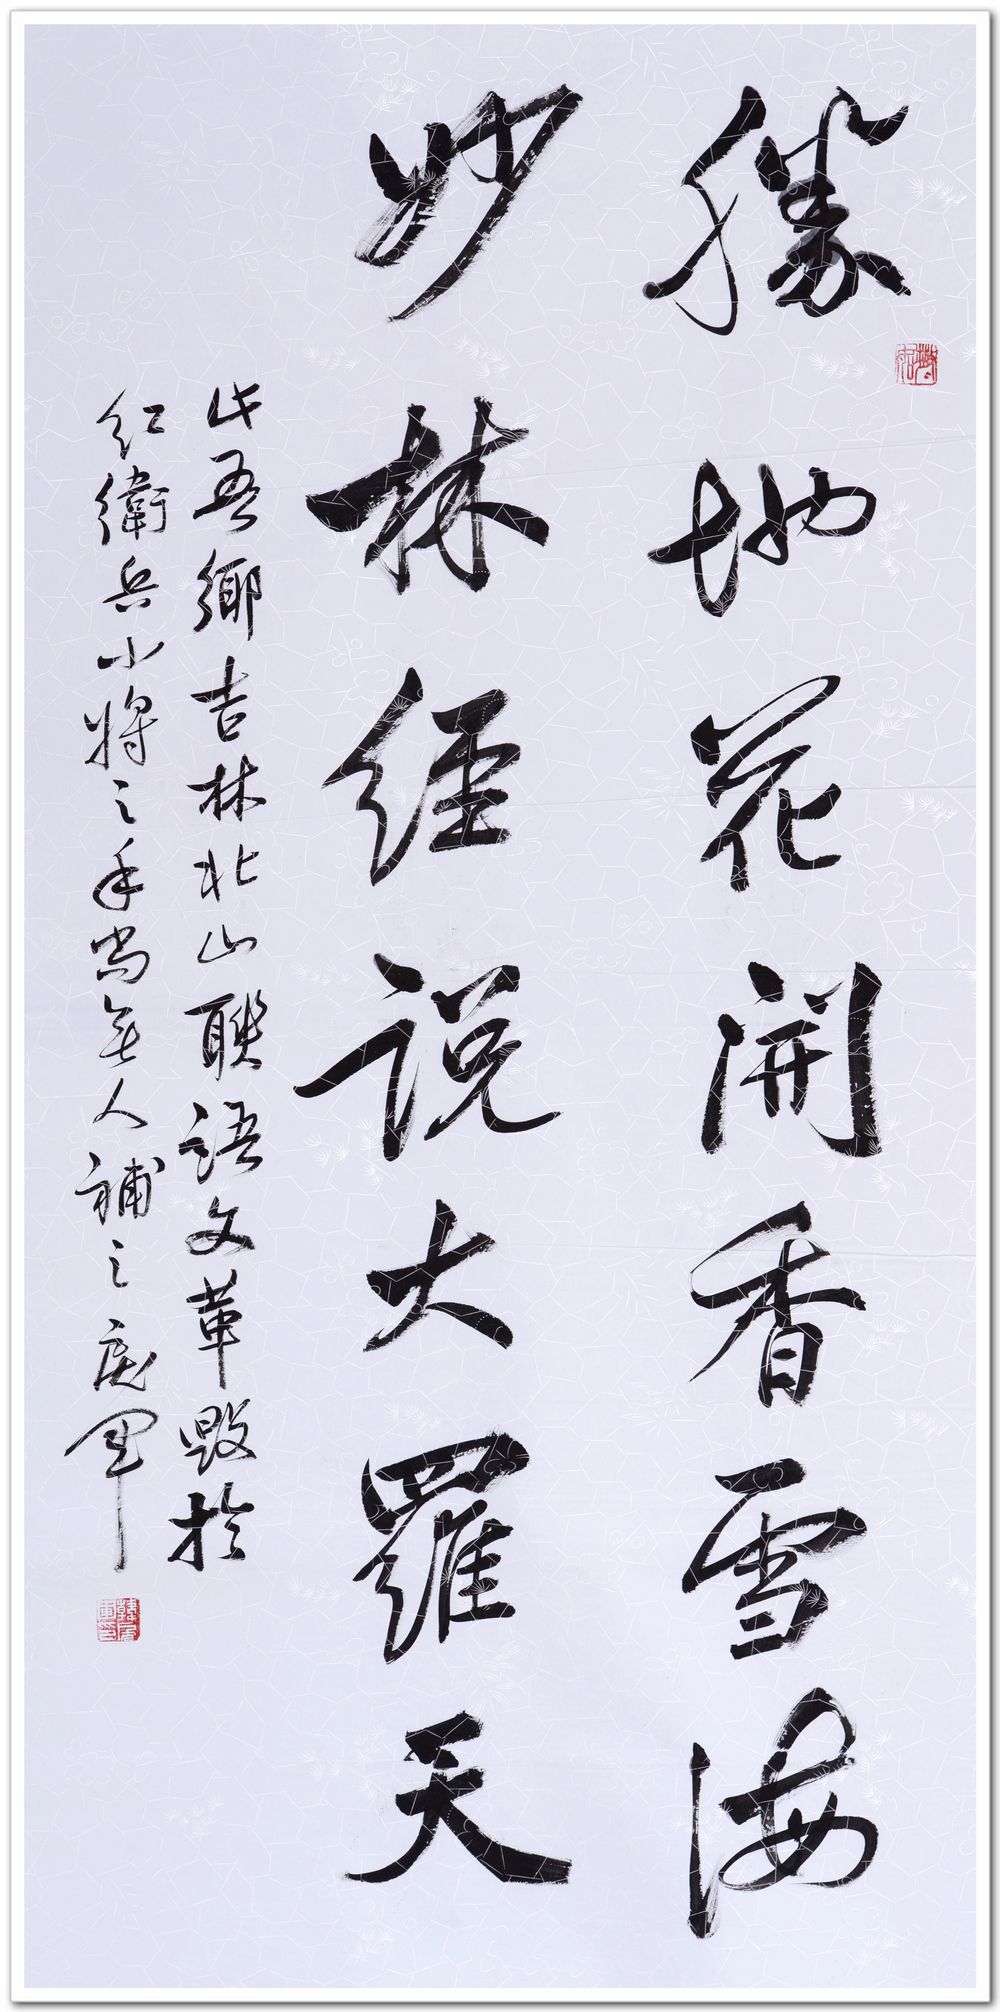 勝地花開香雪海
妙林經説大羅天
此吾鄉吉林北山聯語文革毀於
紅衛兵小將之手尚無人補之庭軍